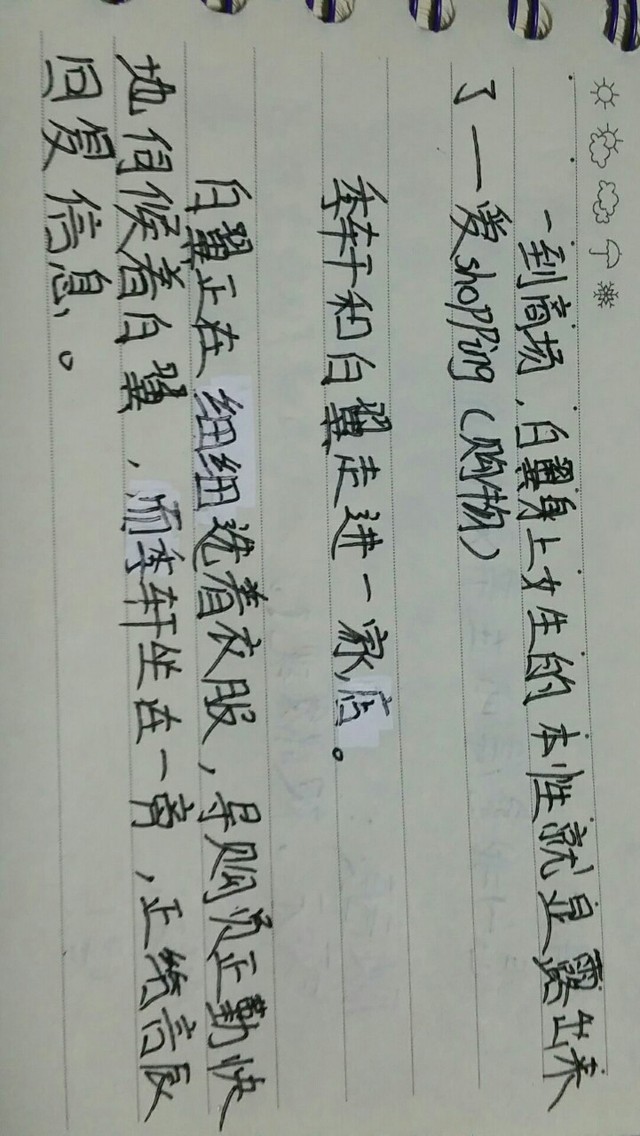 一到商场，白翼身上女生的本性就是露出来
了一爱shopping（购物）
季轩和白翼走进一家店。
白翼正在细细选着衣服，导购员正勤快
地伺候着白翼，而季轩坐在一旁，正给高辰
回复信息。